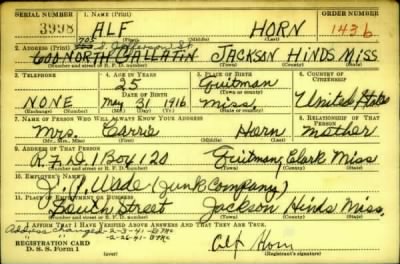 SERIAL NUMBER 1. NAME (Print) ORDER NUMBER
3998 ALF HORN 1436
(First) (Middle) (Last)
2. ADDRESS (Print)
600 NORTH GALLATIN JACKSON HINDS MISS
(Number and street or R. F. D. number) (Town) (County) (State)
3. TELEPHONE 4. AGE IN YEARS 5. PLACE OF BIRTH 6. COUNTRY OF CITIZENSHIP
25 Quitman
DATE OF BIRTH (Town or county)
NONE May 31 1916 Miss. United States
(Exchange) (Number) (Mo.) (Day) (Yr.) (State or country)
7. NAME OF PERSON WHO WILL ALWAYS KNOW YOUR ADDRESS 8. RELATIONSHIP OF THAT PERSON
Mrs. Carrie Horn mother
(Mr., Mrs., Miss) (First) (Middle) (Last)
9. ADDRESS OF THAT PERSON
R.F.D. 1 Box 120 Quitman, Clark Miss
(Number and street or R. F. D. number) (Town) (County) (State)
10. EMPLOYER'S NAME
Wade (Junk Company)
11. PLACE OF EMPLOYMENT OR BUSINESS
South Street Jackson Hinds Miss.
(Number and street or R. F. D. number) (Town) (County) (State)
I AFFIRM THAT I HAVE VERIFIED ABOVE ANSWERS AND THAT THEY ARE TRUE.
Address changed 2-3-41
2-26-41
REGISTRATION CARD
D. S. S. Form 1
Alf Horn
(Registrant's signature)